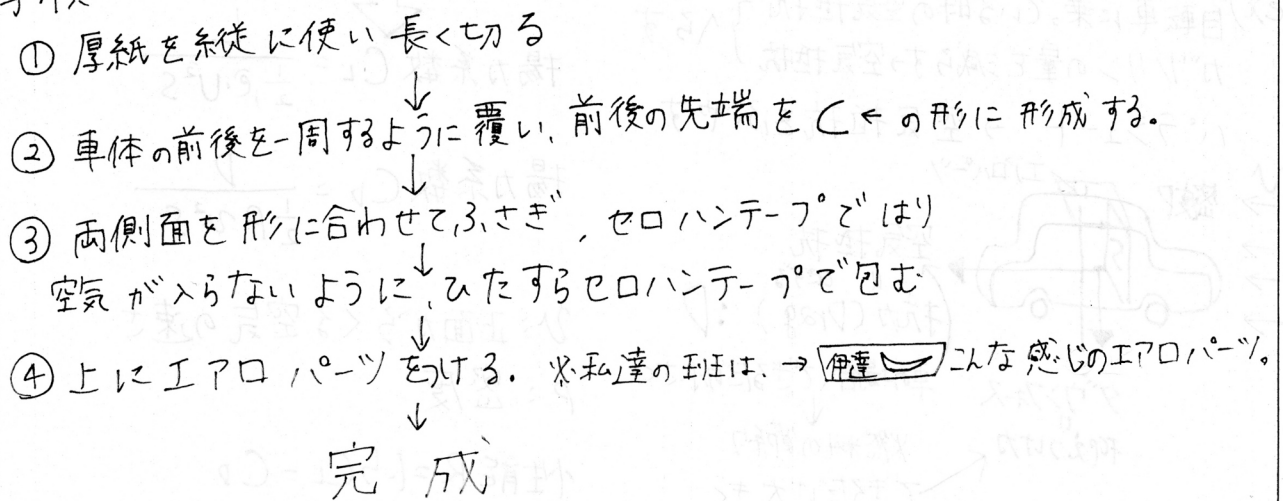 ① 厚紙を縦に使い長く切る
↓
② 車体の前後を一周するように覆い、前後の先端を⊂←の形に形成する。
↓
③ 両側面を形に合わせて、ふさぎ、セロハンテープではり
↓
空気が入らないように、ひたすらセロハンテープで包む
↓
④ 上にエアロパーツをつける。※私達の班は、→ 伊達 こんな感じのエアロパーツ。
↓
完成